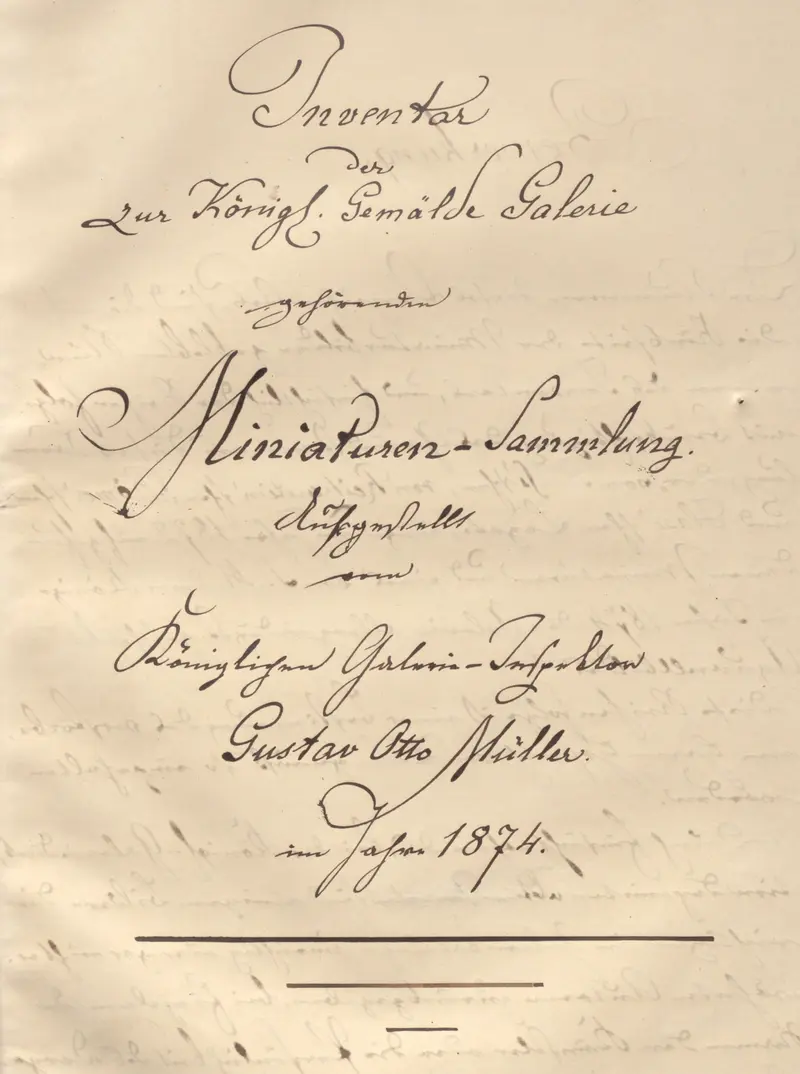 Inventar
der
zur Königl. Gemälde Galerie
gehörenden
Miniaturen-Sammlung.
Aufgestellt
vom
Königlichen Galerie-Inspektor
Gustav Otto Müller.
im Jahre 1874.